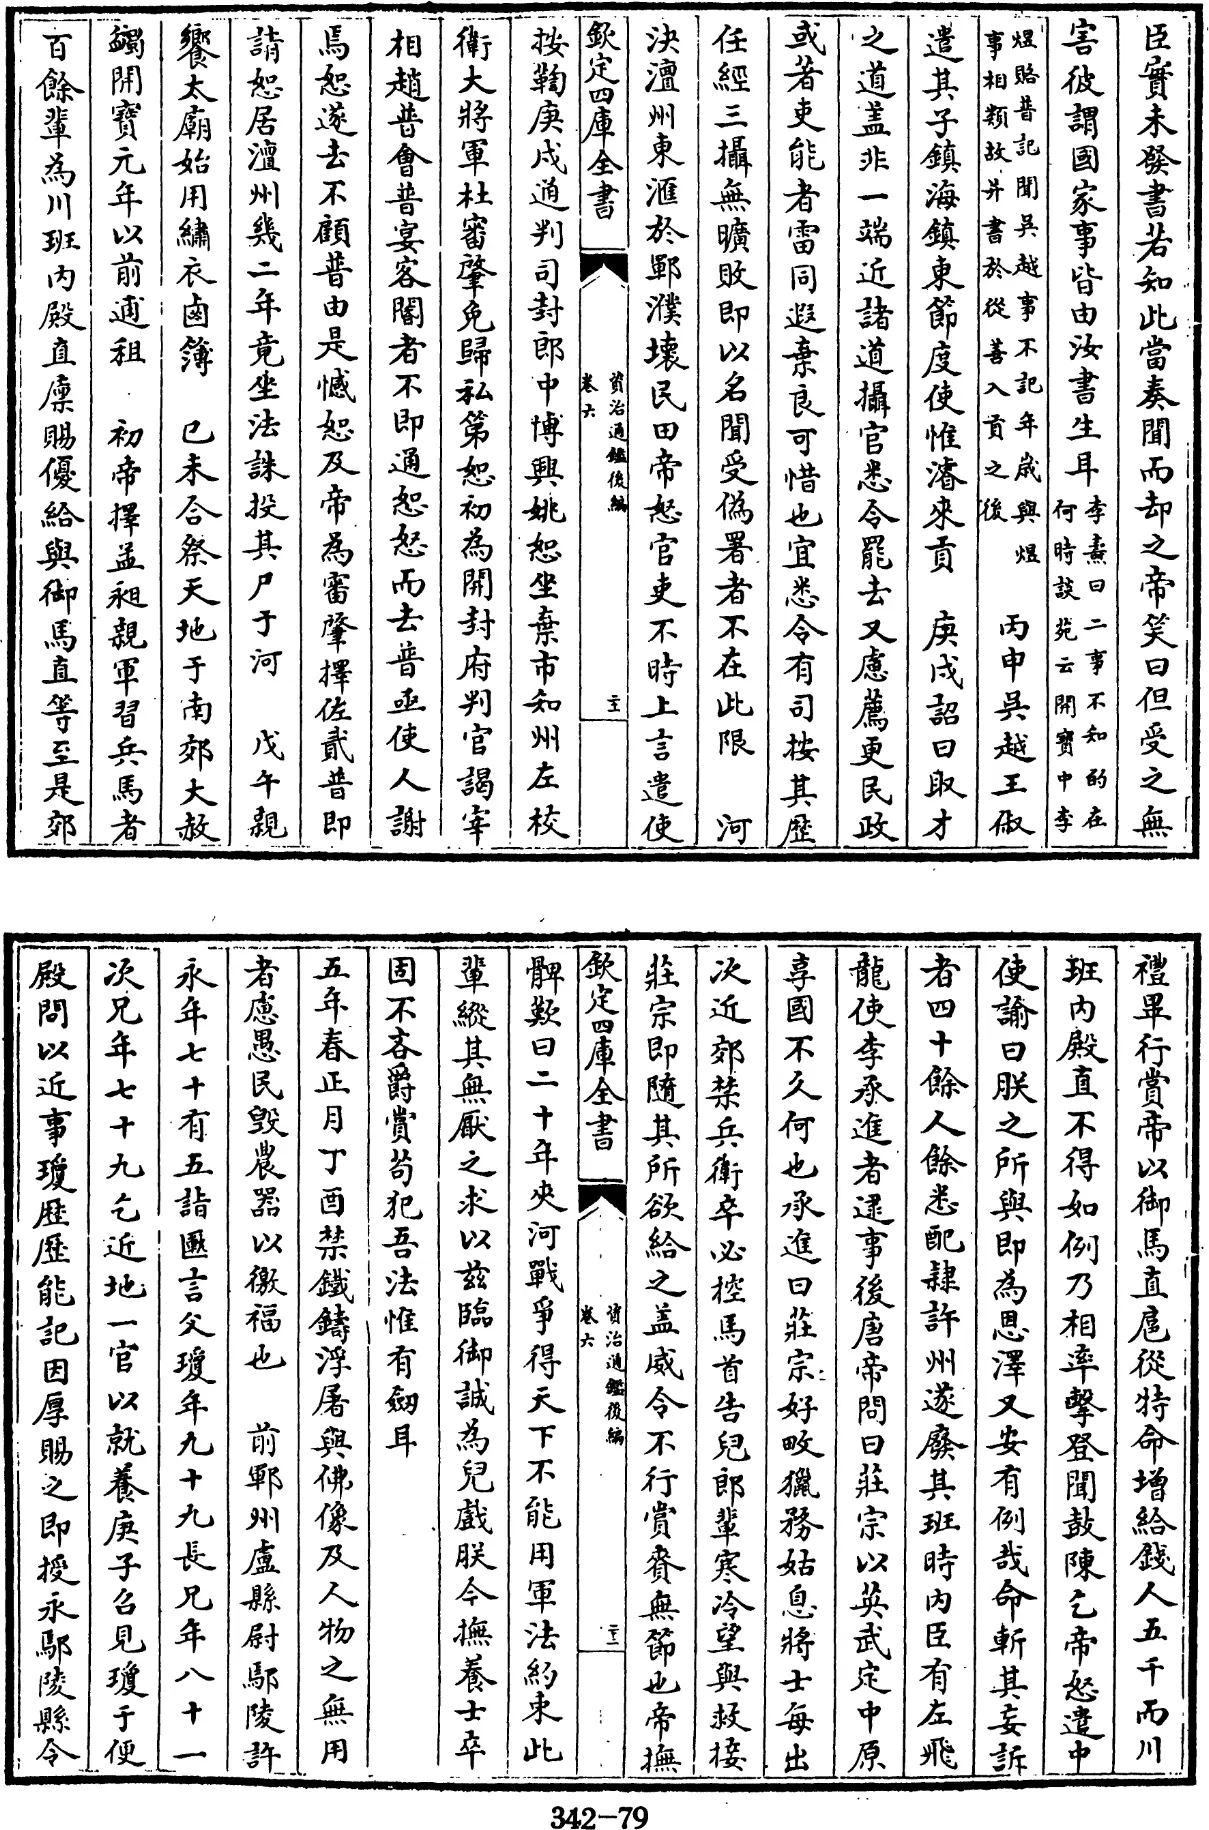 臣實未發書若知此當奏聞而却之帝笑曰但受之無
害彼謂國家事皆由汝書生耳李燾曰二事不知的在何時談苑云開寶中李
煜賂普記聞吳越事不記年嵗與煜事相類故并書於從善入貢之後 丙申吳越王俶
遣其子鎮海鎮東節度使惟濬來貢 庚戌詔曰取才
之道盖非一端近諸道攝官悉令罷去又慮薦更民政
或著吏能者雷同遐棄良可惜也宜悉令有司按其歷
任經三攝無曠敗即以名聞受偽署者不在此限 河
決澶州東滙於鄆濮壞民田帝怒官吏不時上言遣使
欽定四庫全書 資治通鑑後編 卷六 主
按鞫庚戌通判司封郎中博興姚恕坐棄市知州左校
衛大將軍杜審肇免歸私第恕初為開封府判官謁宰
相趙普會普宴客閽者不即通恕怒而去普亟使人謝
焉恕遂去不顧普由是憾恕及帝為審肇擇佐貳普即
請恕居澶州幾二年竟坐法誅投其尸于河 戊午親
饗太廟始用繡衣鹵簿 已未合祭天地于南郊大赦
蠲開寶元年以前逋租 初帝擇孟昶親軍習兵馬者
百餘輩為川班内殿直廪賜優給與御馬直等至是郊
禮畢行賞帝以御馬直扈從特命增給錢人五千而川
班内殿直不得如例乃相率擊登聞鼓陳乞帝怒遣中
使諭曰朕之所與即為恩澤又安有例哉命斬其妄訴
者四十餘人餘悉配隸許州遂廢其班時内臣有左飛
龍使李承進者逮事後唐帝問曰莊宗以英武定中原
享國不久何也承進曰莊宗好畋獵務姑息將士每出
次近郊禁兵衛卒必控馬首告兒郎輩寒冷望與救接
莊宗即隨其所欲給之盖威令不行賞賚無節也帝撫
欽定四庫全書 資治通鑑後編 卷六 主
髀歎曰二十年夾河戰爭得天下不能用軍法約束此
輩縱其無厭之求以兹臨御誠為兒戲朕今撫養士卒
固不吝爵賞苟犯吾法惟有劒耳
五年春正月丁酉禁鐵鑄浮屠與佛像及人物之無用
者慮愚民毁農器以徼福也 前鄆州盧縣尉鄢陵許
永年七十有五詣匭言父瓊年九十九長兄年八十一
次兄年七十九乞近地一官以就養庚子召見瓊于便
殿問以近事瓊歷歷能記因厚賜之即授永鄢陵縣令
342-79